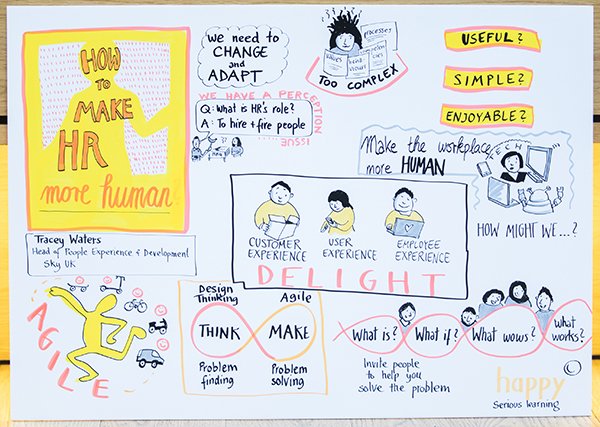 HOW
TO
MAKE
HR
more human?
we need to
CHANGE and
ADAPT
WE HAVE A PERCEPTION
ISSUE
Q: What is HR's role?
A: To hire + fire people
processes
values
TOO COMPLEX
USEFUL?
SIMPLE?
ENJOYABLE?
Make the workplace
more HUMAN
TECH
HOW MIGHT WE...?
Tracey Waters
Head of People Experience & Development
Sky UK
CUSTOMER
EXPERIENCE
USER
EXPERIENCE
EMPLOYEE
EXPERIENCE
DELIGHT
AGILE
Design
Thinking
Agile
THINK
MAKE
Problem
finding
Problem
solving
What is?
What if?
What wows?
What
works?
Invite people
to help you
solve the problem
happy
Serious learning